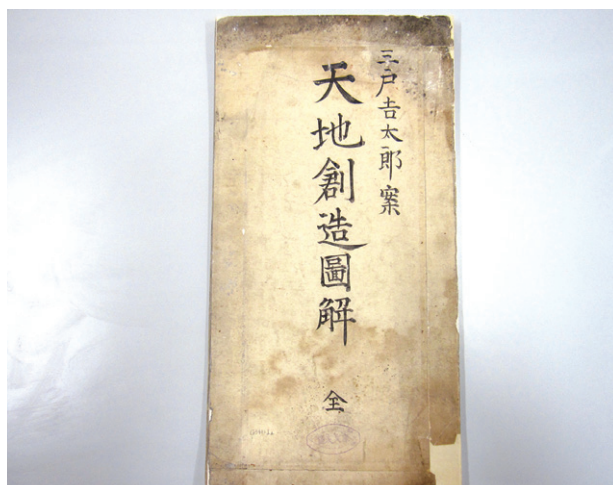 三戸吉太郎案
天地創造圖解
全